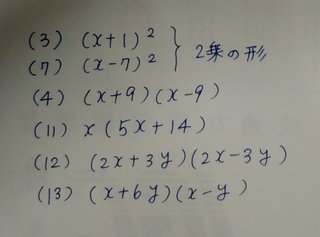 (3) (x+1)²
(7) (x-7)² } 2乗の形
(4) (x+9)(x-9)
(11) x(5x+14)
(12) (2x+3y)(2x-3y)
(13) (x+6y)(x-y)